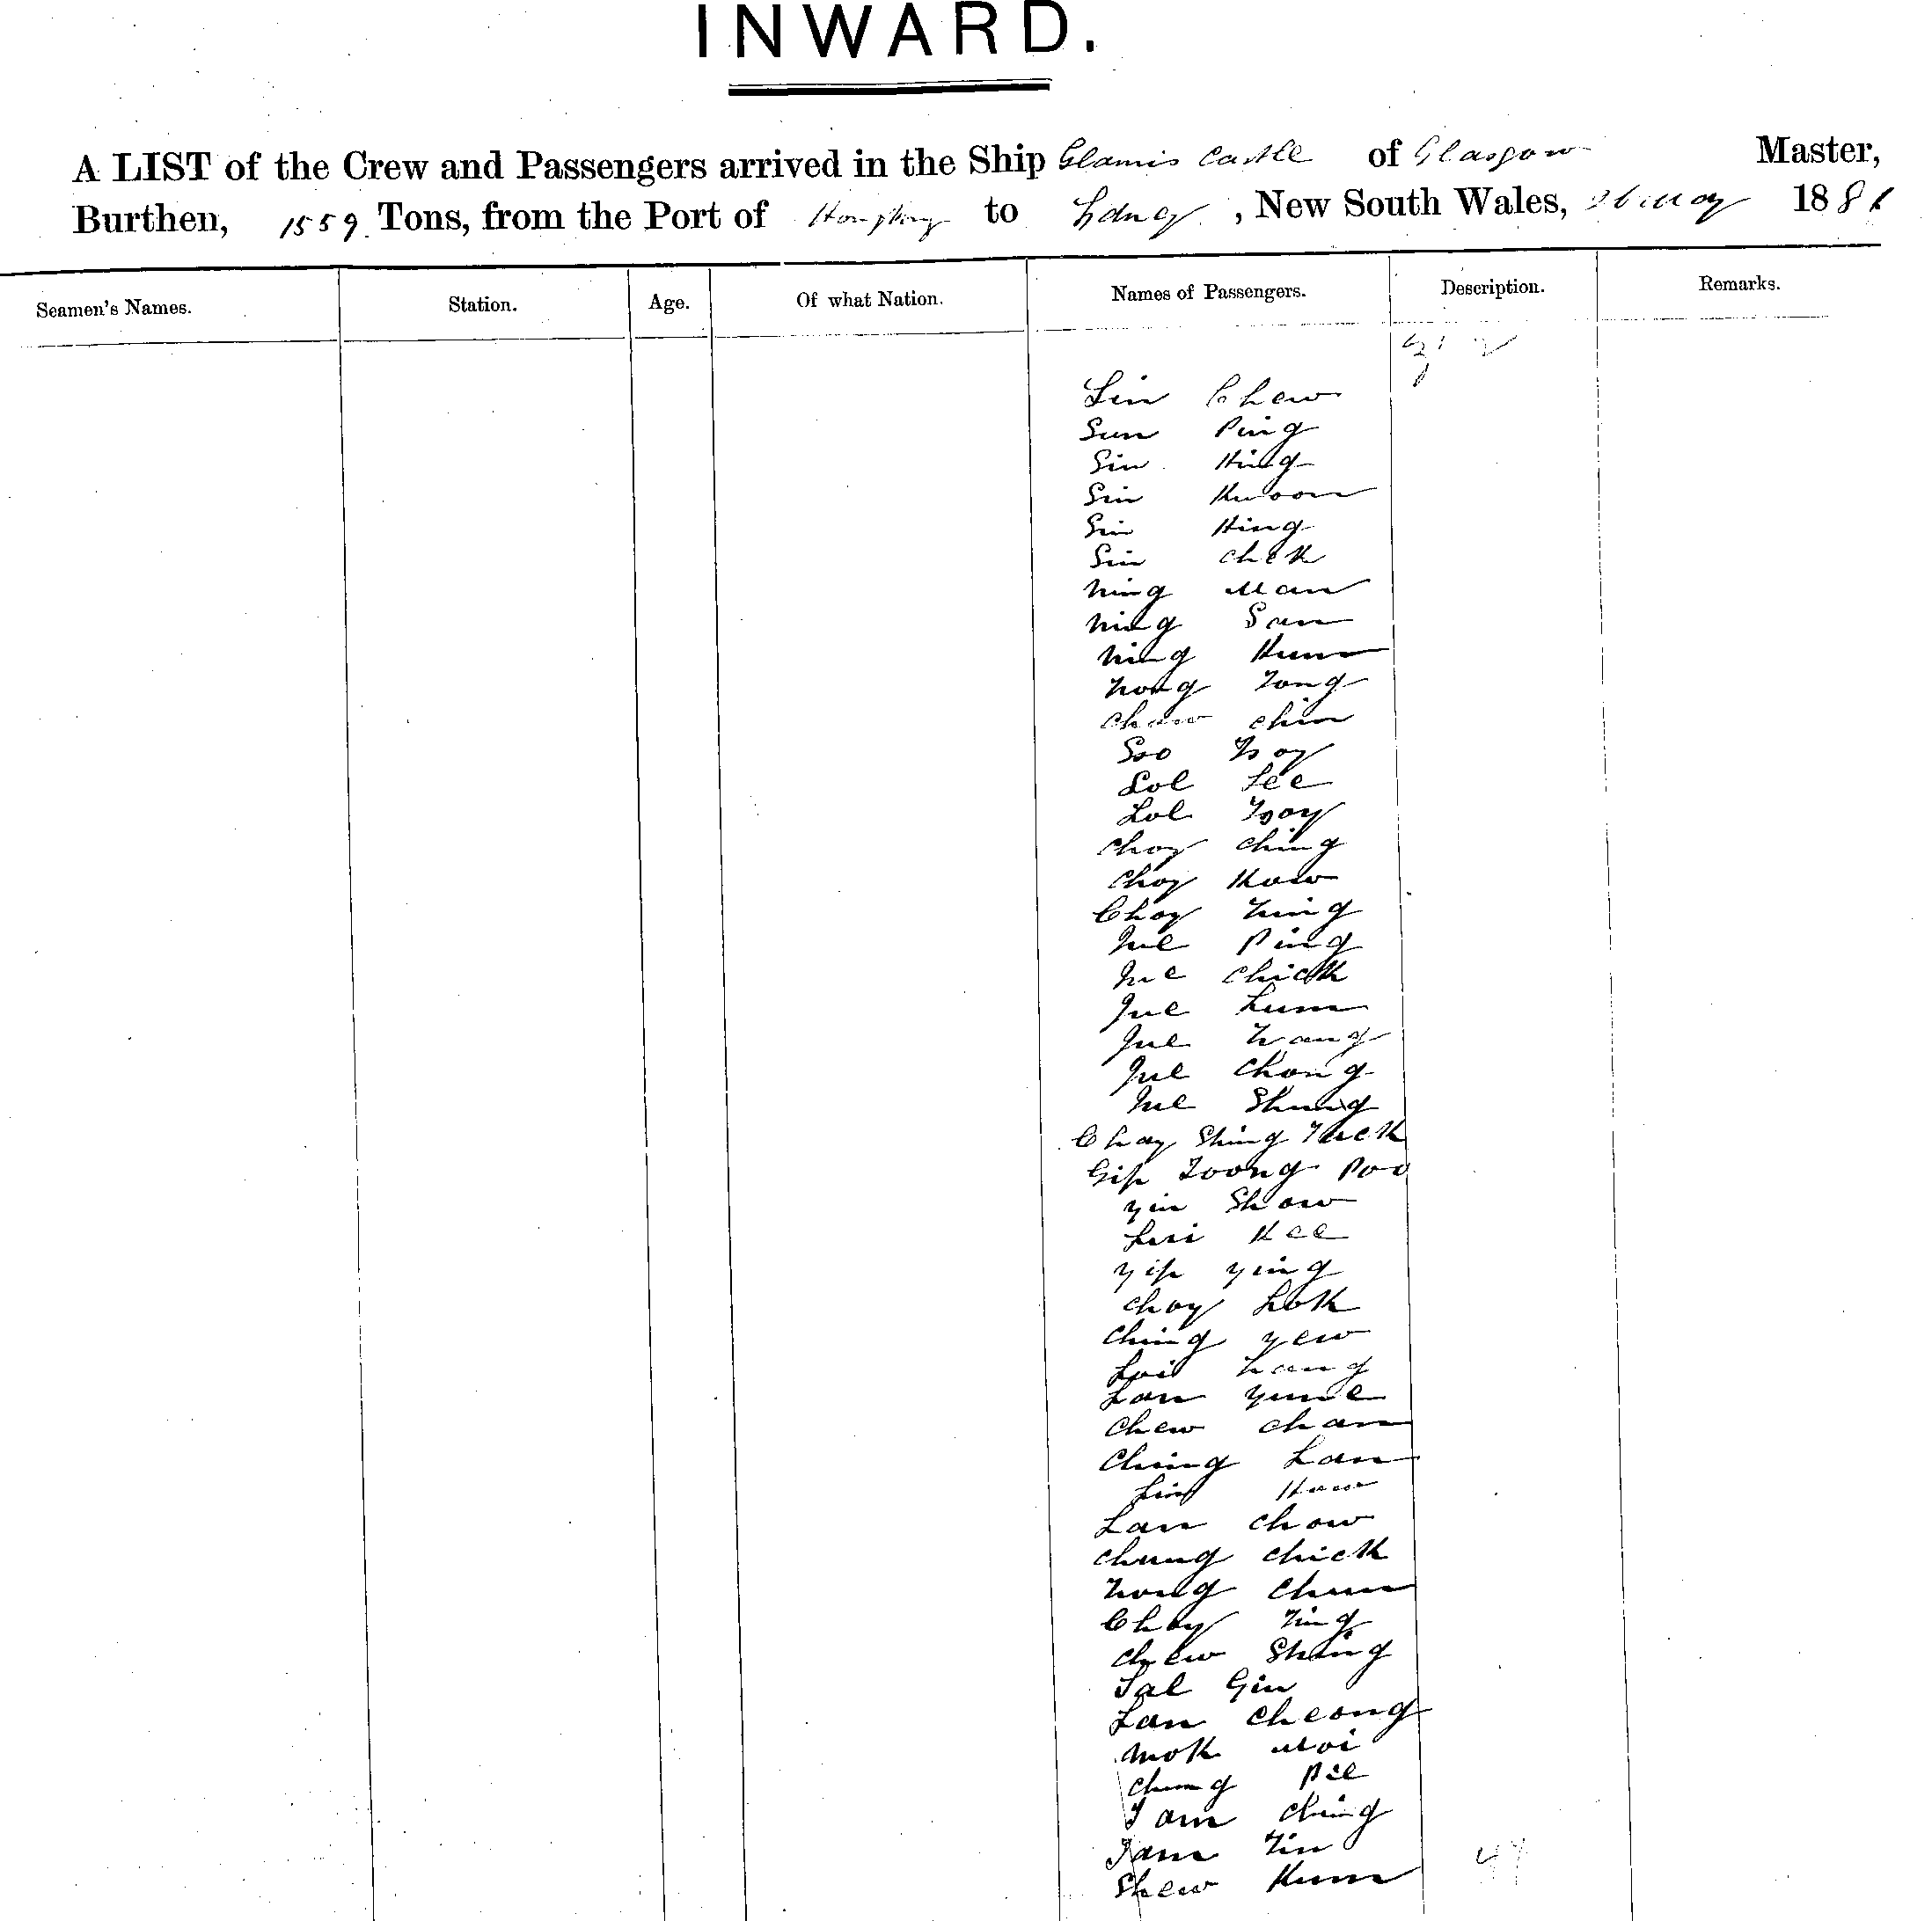 INWARD.
A LIST of the Crew and Passengers arrived in the Ship Glamis Castle of Glasgow Master,
Burthen, 1559 Tons, from the Port of Hongkong to Sydney, New South Wales, 26 May 1881
Seamen's Names. Station. Age. Of what Nation. Names of Passengers. Description. Remarks.
Lin Chew
Sun Ping
Sin Hing
Sin Kwoon
Sin Hing
Sin Chek
Ning Man
Ning San
Ning Kum
Tong
Chaw Chin
Soo
Lol See
Lol Tsoy
Choy Ching
Choy Kow
Choy
Jue Ping
Jue Chick
Jue Lum
Jue
Jue Chong
Jue Shung
Chay Shing Tuck
Gip Toong Poo
Yin Show
Lui Kee
Yip Ying
Choy Lok
Ching Yew
Loi
Lan Yune
Chew Chan
Ching Lan
Ling
Lan Chow
Chung Chick
Chun
Choy Ting
Chew Shing
Tal Gin
Lan Cheong
Mok Moi
Chung Pee
Tam Ching
Tam Tin
Shew Kum
47